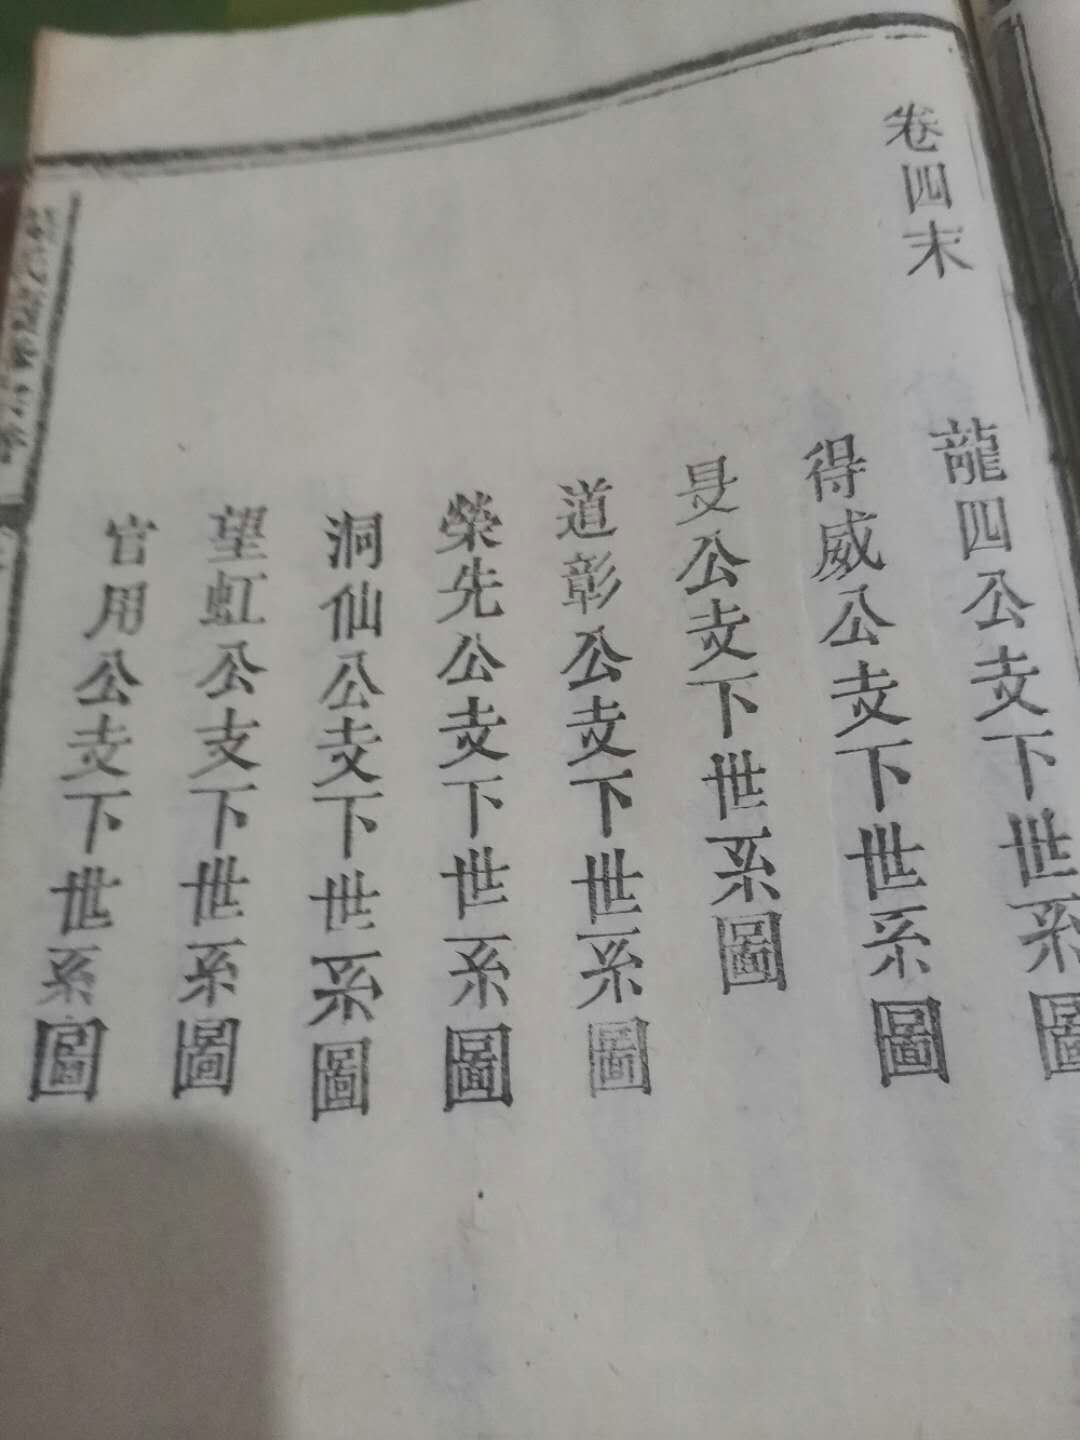 卷四末
龍四公㞢下世系圖
得威公㞢下世系圖
旻公㞢下世系圖
道彰公㞢下世系圖
榮先公㞢下世系圖
洞仙公㞢下世系圖
望虹公支下世系圖
官用公㞢下世系圖